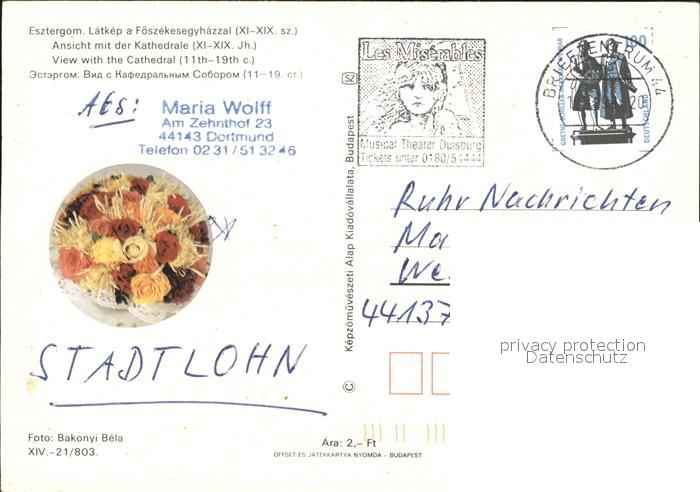 Esztergom. Látkép a Főszékesegyházzal (XI–XIX. sz.)
Ansicht mit der Kathedrale (XI–XIX. Jh.)
View with the Cathedral (11th–19th c.)
Эстэргом. Вид с Кафедральным Собором (11–19. ст.)
Abs:
Maria Wolff
Am Zehnthof 23
44143 Dortmund
Telefon 02 31 / 51 32 46
STADTLOHN
Foto: Bakonyi Béla
XIV.–21/803.
Ára: 2,– Ft
OFFSET ÉS JÁTÉKKÁRTYA NYOMDA – BUDAPEST
© Képzőművészeti Alap Kiadóvállalata, Budapest
SZ
Les Misérables
Musical Theater Duisburg
Tickets unter 0180/54444
BRIEFZENTRUM 44
100
DEUTSCHLAND
Ruhr Nachrichten
Ma
We
44137
privacy protection
Datenschutz